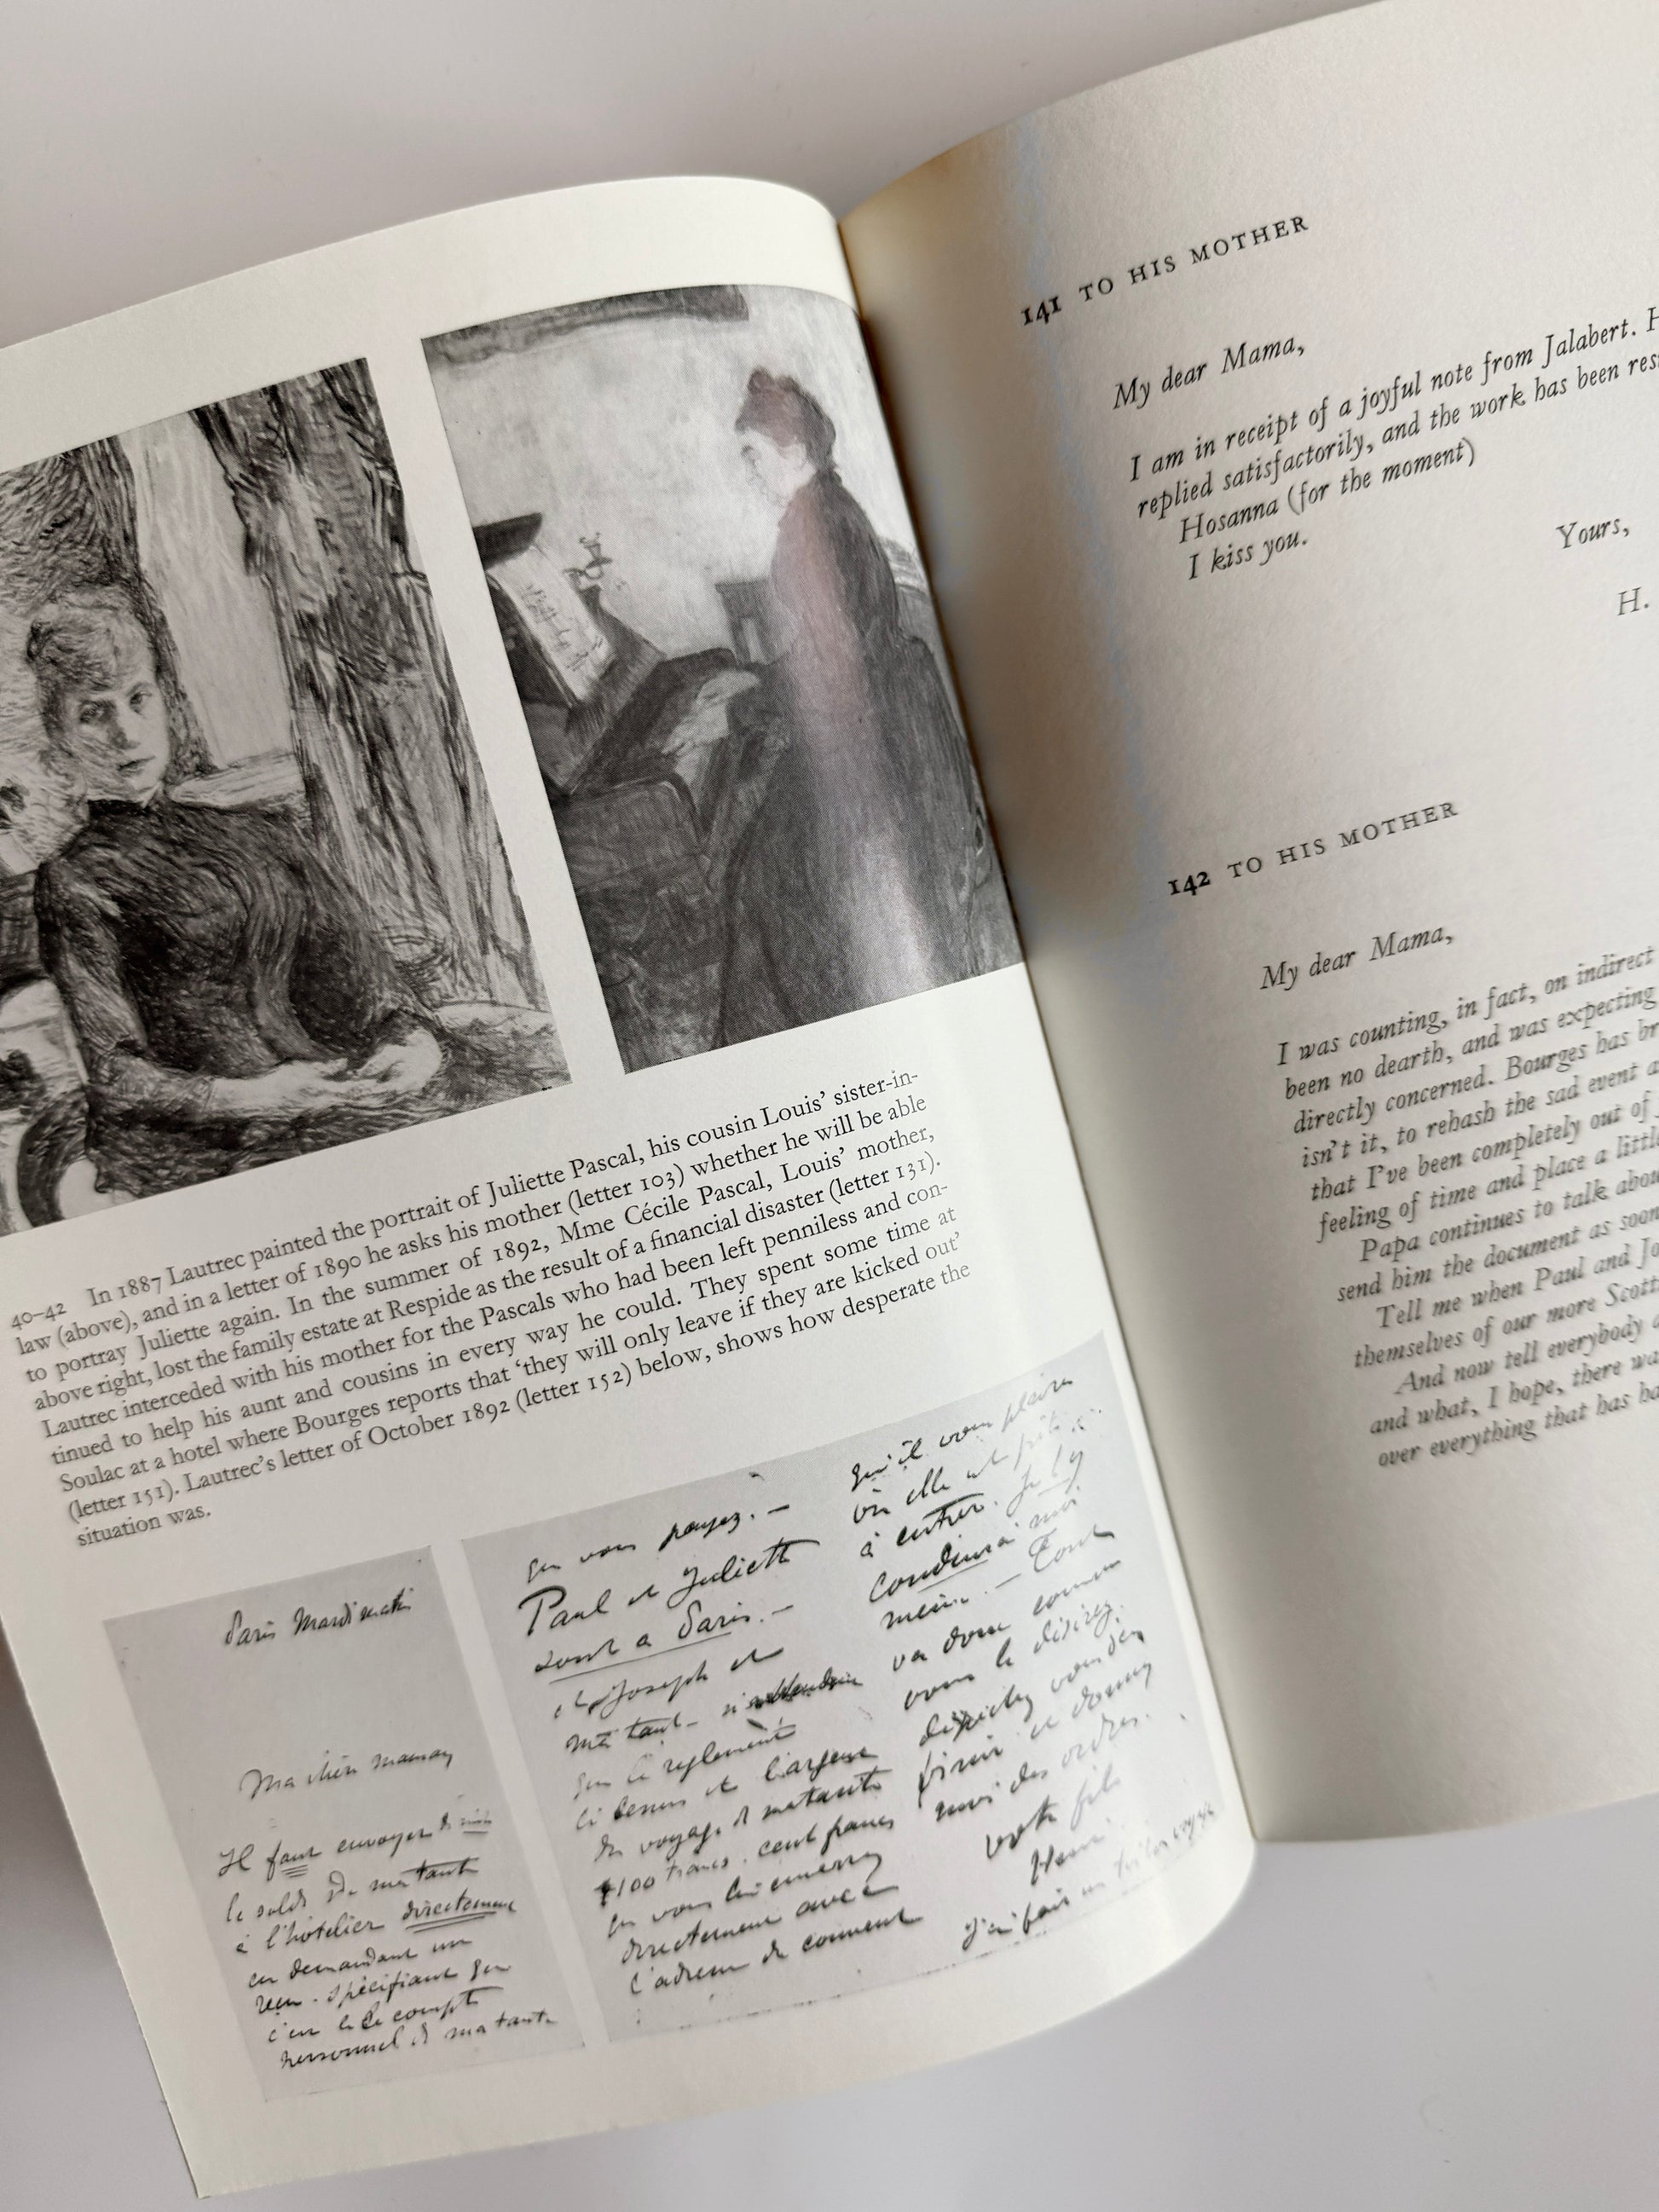 40–42 In 1887 Lautrec painted the portrait of Juliette Pascal, his cousin Louis’ sister-in-
law (above), and in a letter of 1890 he asks his mother (letter 103) whether he will be able
to portray Juliette again. In the summer of 1892, Mme Cécile Pascal, Louis’ mother,
above right, lost the family estate at Respide as the result of a financial disaster (letter 131).
Lautrec interceded with his mother for the Pascals who had been left penniless and con-
tinued to help his aunt and cousins in every way he could. They spent some time at
Soulac at a hotel where Bourges reports that ‘they will only leave if they are kicked out’
(letter 151). Lautrec’s letter of October 1892 (letter 152) below, shows how desperate the
situation was.
Paris Mardi matin
Ma chère maman
Il faut envoyer
le solde de ma tante
à l’hotelier directement
en demandant un
reçu. spécifiant que
c’est le compte
personnel de ma tante
que vous payez. —
Paul et Juliette
sont a Paris. —
et Joseph et
ma tante
que le réglement
et l’argent
du voyage de ma tante
100 francs. cent francs
que vous lui enverrez
directement avec
l’adresse du couvent
qu’il vous plaira
où elle est prête
à entrer.
conduirai moi
même. — Tout
va donc comme
vous le désirez.
dépêchez vous d’en
finir et donnez
moi des ordres.
votre fils
Henri.
j’ai fait un très bon voyage
141 TO HIS MOTHER
My dear Mama,
I am in receipt of a joyful note from Jalabert.
replied satisfactorily, and the work has been
Hosanna (for the moment)
I kiss you.
Yours,
H.
142 TO HIS MOTHER
My dear Mama,
I was counting, in fact, on indirect
been no dearth, and was expecting
directly concerned. Bourges has
isn’t it, to rehash the sad event
that I’ve been completely out of
feeling of time and place a little
Papa continues to talk about
send him the document as soon
Tell me when Paul and
themselves of our more
And now tell everybody
and what, I hope, there
over everything that has